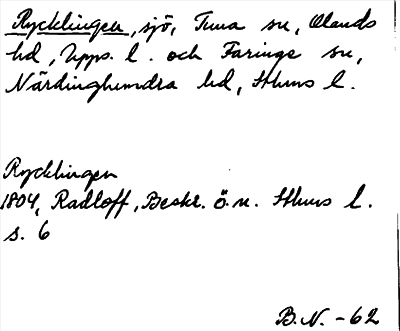 Rycklingen, sjö, Tuna sn, Olands
hd, Upps. l. och Faringe sn,
Närdinghundra hd, Sthms l.
Rycklingen
1804, Radloff, Beskr. ö. n. Sthms l.
s. 6
B.N. -62